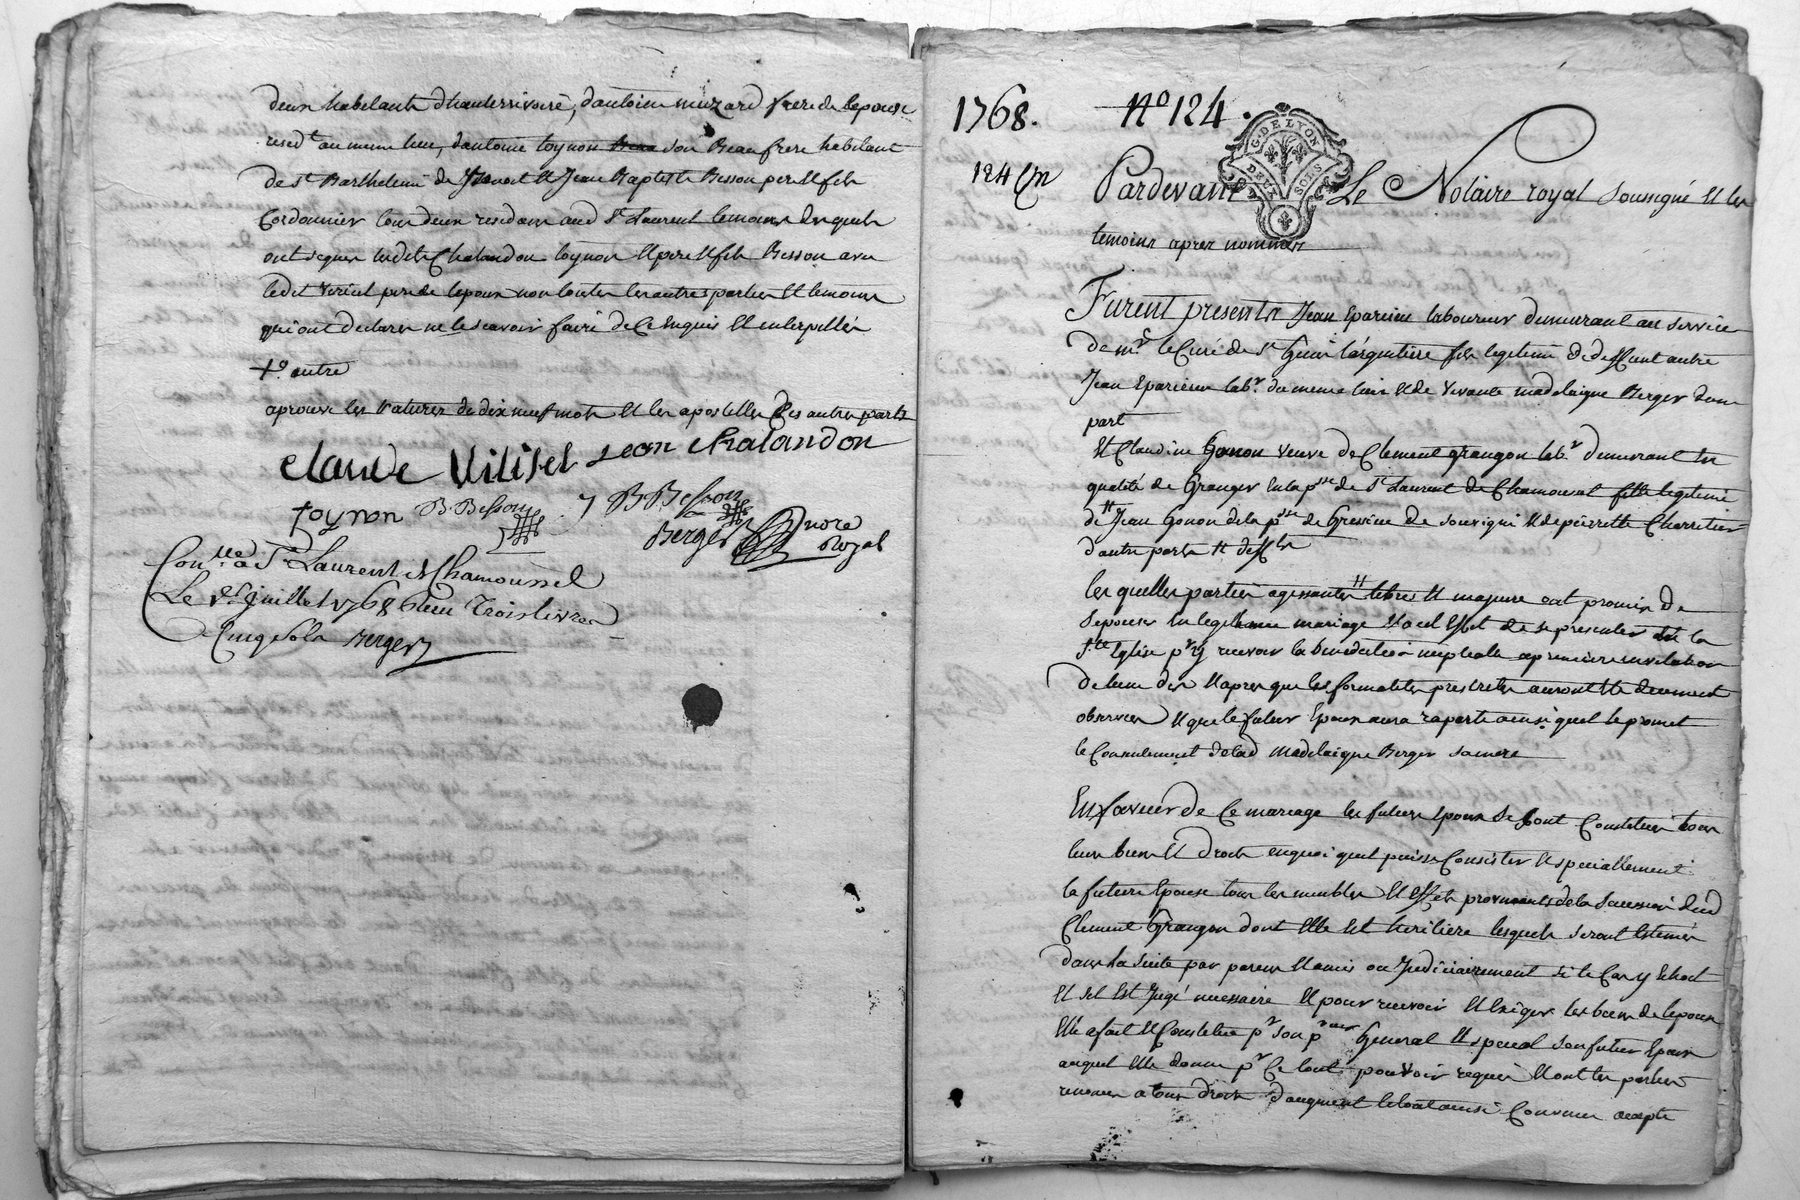 deux habitants d'hauterivoire, d'antoine muzard frere de lepouse
resid.t au meme lieu, d'antoine toynon son Beaufrere habitant
de St Barthelemi de et Jean Baptiste Besson pere et fils
Cordonnier tous deux residans aud St Laurent temoins desquels
ont signes lesdits Chalandon toynon et pere et fils Besson avec
ledit pere de lepoux non toutes les autres parties et temoins
qui ont declares ne le scavoir faire de ce enquis et interpellés
autre
aprouve les ratures de dix neuf mots et les apostilles des autres parts
claude Jean chalandon
toynon B. Besson J B Besson
Berger Nore
Royal
Con.lle a St Laurent de Chamoussel
Le juillet 1768 trois livres
Cinq Sols Berger
1768. N° 124.
G. DE LYON
DEUX SOLS
124
Pardevant Le Notaire royal soussigné et les
temoins apres nommes
Furent presents Jean Eparvier laboureur demeurant au service
de mr. le Curé de St Genis l'argentiere fils legitime de deffunt autre
Jean Eparvier lab.r du meme lieu et de vivante madelaigne Berger d'une
part
Et Claudine Gonon veuve de Clement grangon lab.r demeurant en
qualité de Granger en la p.sse de St Laurent de Chamousset fille legitime
de Jean Gonon de la p.sse de et de pierrette
d'autre part
lesquelles parties agissantes libres et majure ont promis de
sepouser en legitime mariage et a cet effet de se presenter a la
Ste Eglise p.r y recevoir la benediction nuptialle a premiere invitation
de l'un deux et apres que les formalites prescrites auront ete duement
observees et que le futur Epoux aura raporte ainsi quil le promet
le Consentement de lad madelaigne Berger sa mere
En faveur de Ce mariage les futurs Epoux se sont Constitues tous
leurs biens et droits en quoi quil puisse Consister et speciallement
la future Epouse tous les meubles et effets provenants de la succession dud
Clement Grangon dont elle est heritiere lesquels seront estimés
dans la suite par parens et amis ou Judiciairement si le Cas y echoit
et sil est Jugé necessaire et pour recevoir et exiger les biens de lepouse
Elle a fait et Constitue p.r son p.reur General et special son futur Epoux
auquel elle donne p.r Ce tout pouvoir requis et ont les parties
renoncé a tous droits d'augment Convenu accepté